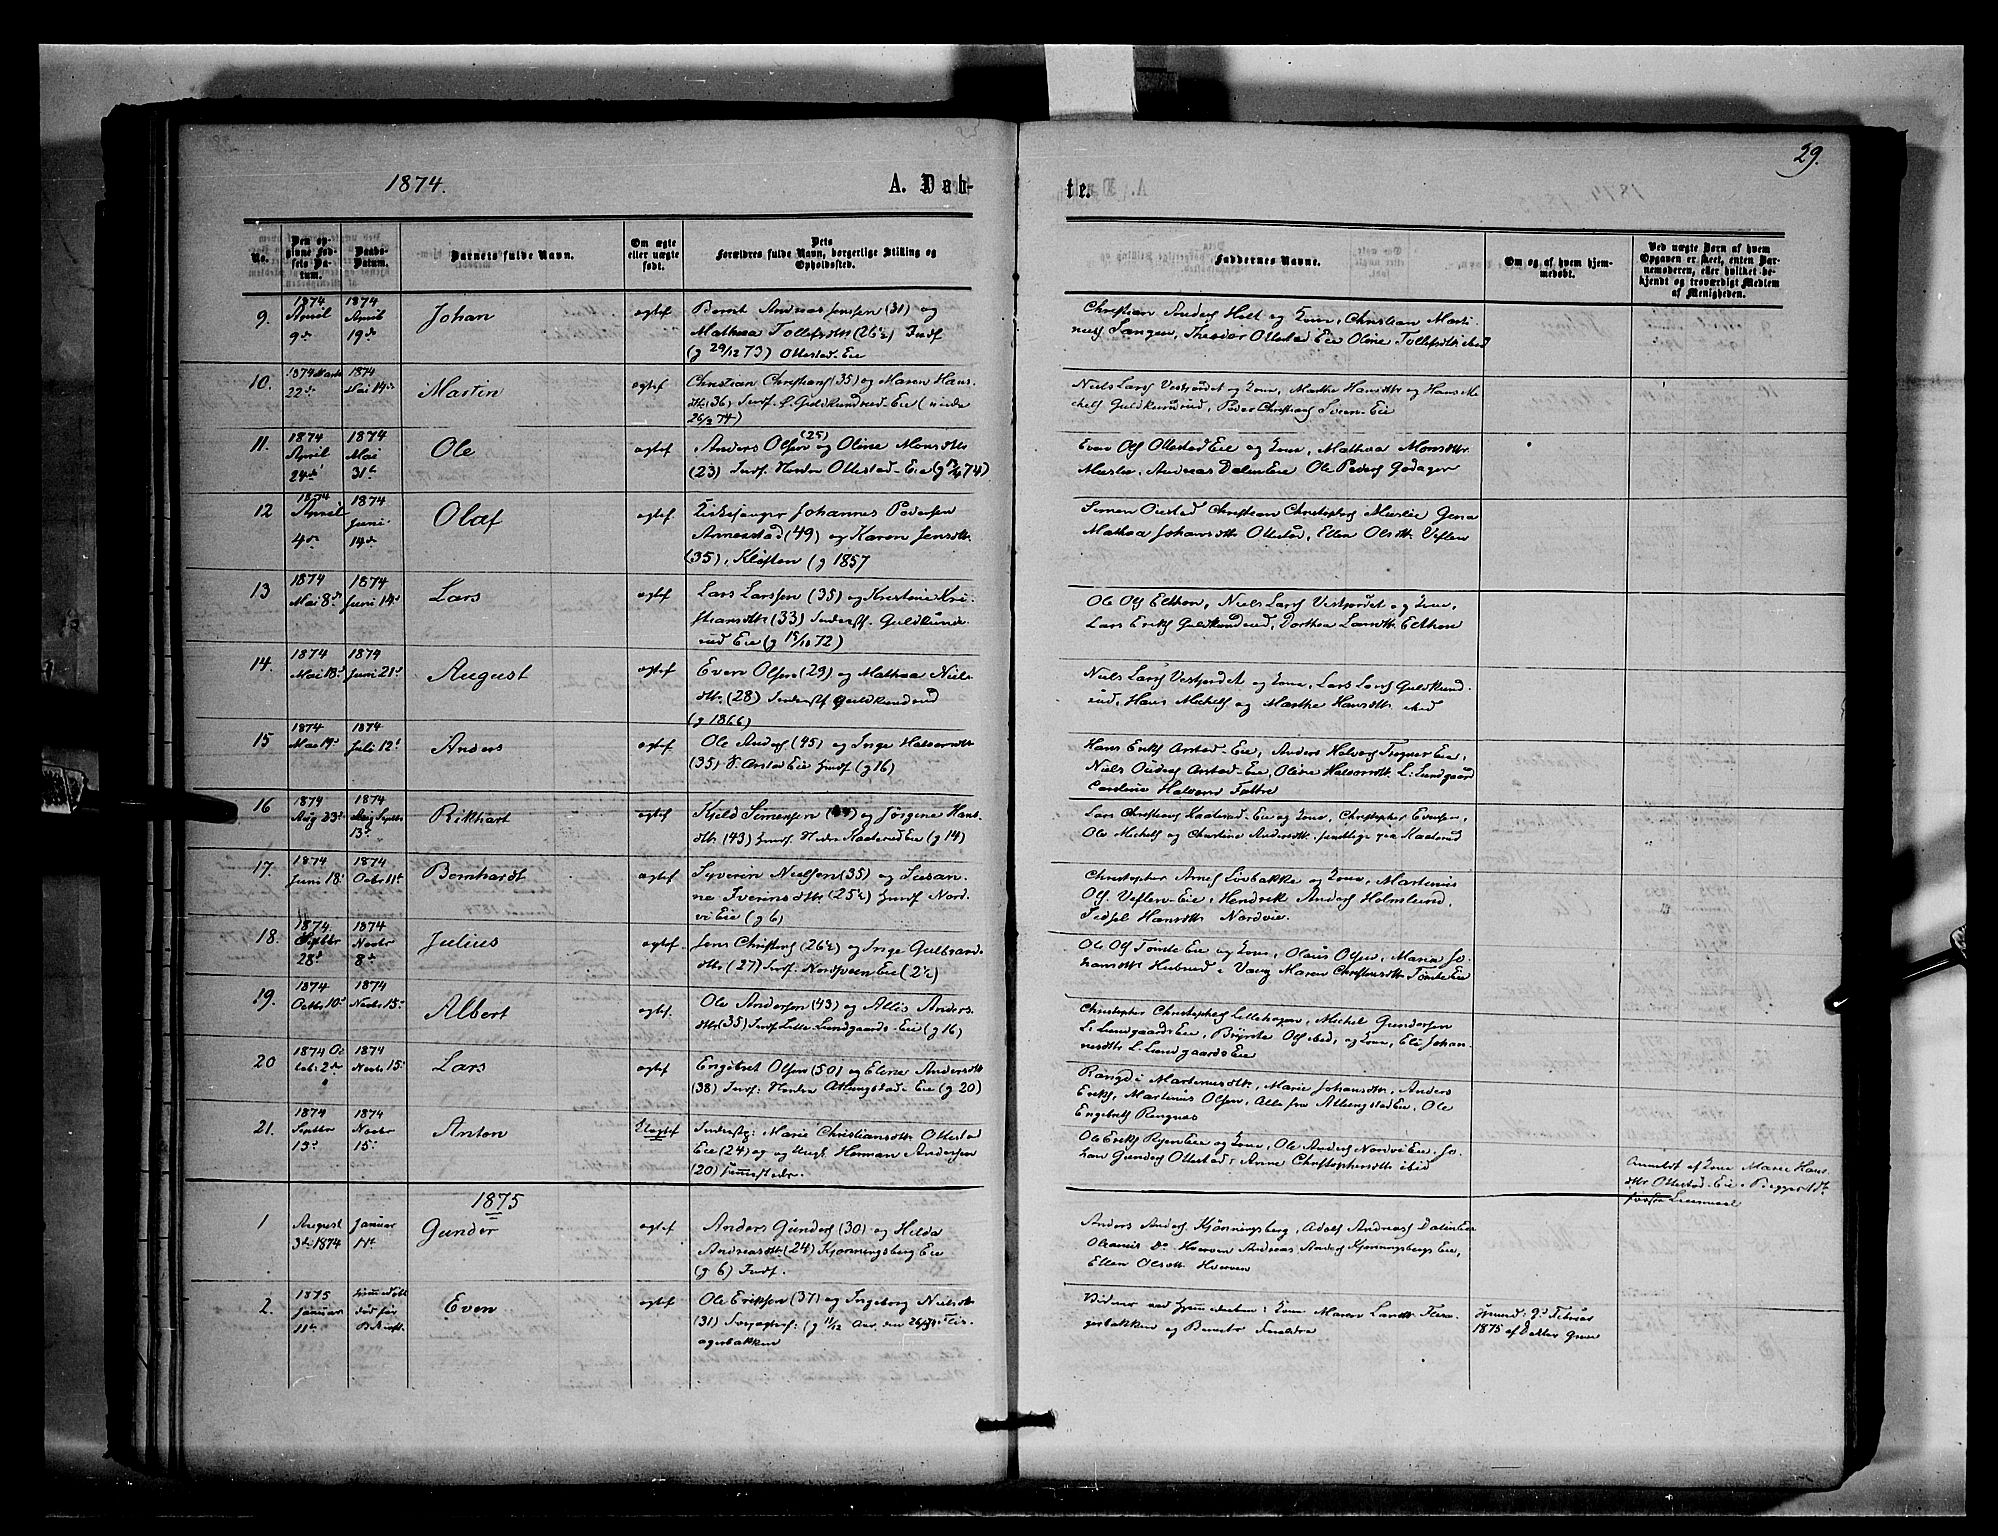 29.
1874.
A. Døb-
te.
No.
Den opgivne Fødsels Datum.
Daabs-Datum.
Barnets fulde Navn.
Om ægte eller uægte født.
Dets Forældres fulde Navn, borgerlige Stilling og Opholdssted.
Faddernes Navne.
Om og af hvem hjemmedøbt.
Ved uægte Børn af hvem Opgaven er skeet, enten Barnemoderen, eller hvilket bekjendt og troværdigt Medlem af Menigheden.
9.
1874 April 9de
1874 April 19de
Johan
ægtef
Bernt Andreas Jensen (31) og
Mathea Tollefsdtr (26½) Indf
(g 29/12 73) Ottestad-Eie
Christian Anders Holt og Kone, Christian Marti-
nus Sangen, Theodor Ottestad Eie Oline Tollefsdtr ibid
10.
1874 Marts 22de
1874 Mai 14de
Martin
ægtef
Christian Christians (35) og Maren Hans-
dtr. 36) Indf. Guldkundrud-Eie
Niels Lars Vestjordet og Kone, Marthe Hansdtr og Hans Mi-
chels Guldkundrud, Peder Christians Sveen-Eie
11.
1874 April 24de
1874 Mai 31te
Ole
ægtef
Anders Olsen (25) og Oline Monsdtr
(23) Indf. Nordre Ottestad-Eie
Even Ols Ottestad Eie og Kone, Mathea Monsdtr
Muslie, Andreas Dalen Eie Ole Peders Godager
12
1874 April 4de
1874 Juni 14de
Olaf
ægtef.
Kirkesanger Johannes Pedersen
Annexstad (49) og Karen Jensdtr
(35), Kløften (g 1857
Simen Oustad Christian Christophers Muslie
Mathea Johansdtr Ottestad, Ellen Olsdtr Veflen
13
1874 Mai 8de
1874 Juni 14de
Lars
ægtef
Lars Larssen (35) og Kristine Kri-
stiansdtr (33) Inderst. Guldkund-
rud Eie (g 15/10 72)
Ole Ols Elthon, Niels Lars Vestjordet og Kone,
Lars Eriks Guldkundrud, Dorthea Larsdtr Elthon
14.
1874 Mai 18d
1874 Juni 21d
August
ægtef
Even Olsen (29) og Mathea Niels-
dtr. (28) Inderst Guldkundrud
(g 1866)
Niels Lars Vestjordet og Kone, Lars Lars Guldkund-
rud, Hans Michels og Marthe Hansdtr ibid
15
1874 Mai 19d
1874 Juli 12t
Anders
ægtef
Ole Anders (45) og Inge Halvorsdtr
(35) Arstad Eie Indf (g 16)
Hans Eriks Arstad-Eie, Anders Halvors Trogner Eie,
Niels Anders Arstad-Eie, Oline Halvorsdtr L. Lundgaard
16
1874 Aug 23d
1874 Septbr 13d
Rikhart
ægtef
Kjeld Simensen og Jørgine Hans-
dtr (43) Indf. Nedre Kaaterud Eie (g 14)
Lars Christians Kaaterud-Eie og Kone, Christopher Evensen,
Ole Michels og Christine Andersdtr. samtlige fra Kaaterud
17.
1874 Juni 18d
1874 Octbr 11te
Bernhardt
ægtef
Syverin Nielsen (35) og Susan-
ne Iverinsdtr (25½) Indf Nord-
vi Eie (g 6)
Christopher Arnes Lövbakke og Kone, Martinius
Ols. Veflen-Eie, Hendrik Anders Holmlund,
Hansdtr Nordvie.
18.
1874. Septbr 28d
1874 Novbr 8de
Julius
ægtef.
Jens Christians (26½) og Inge Gulbrands-
dtr. (27) Indf. Nordveen Eie (2½)
Ole Ols Tomte Eie og Kone, Olaus Olsen, Maria Jo-
hansdtr i Vang Maren Christiansdtr Tomte Eie
19.
1874 Octbr 10d
1874 Novbr 15d
Albert
ægtef.
Ole Andersen (43) og Allis Anders-
dtr (35) Indf Lille Lundgaards-Eie (g 16)
Christopher Christophers Lillehagen, Michel Gundersen
L. Lundgaards Eie, Børrete Ols ibid, og Kone, Eli Johan-
nesdtr L. Lundgaards Eie
20
1874 Octbr 2de
1874 Novbr 15d
Lars
ægtef
Engebret Olsen (50) og Eline Andersdtr
(38) Indf: Nordre Atlungstad-Eie (g 20)
Rangdi Martinusdtr., Marie Johansdtr, Anders
Eriks, Martinus Olsen, Alle fra Atlungstad Eie, Ole
Engebrets Rengnes
21.
1874 Septbr 13d
1874 Novbr 15d
Anton
Uægtef
Inderstp: Marie Christiansdtr Ottestad
Eie (24) og Ungk Herman Andersen
(20)
Ole Eriks Ryen Eie og Kone, Ole Anders Nordvi Eie, Jo-
han Gunders Ottestad, Anne Christophersdtr ibid
Anmeldt af Kone Marie Hans-
dtr Ottestad-Eie
1875
1
August 3de 1874
Januar 11te
Gunder
ægtef
Anders Gunders (30) og Helda
Andreasdtr (24) Kjønningsberg Eie
(g 6) Indf.
Anders Anders Kjønningsberg, Adolf Andreas Dalen Eie
Oleanus Do Hverven Andreas Anders Kjønningsbergs Eie,
Ellen Olsdtr Hverven
2.
1875 Januar 11te
Hjemmedøbt død før
Even
ægtef
Ole Eriksen (37) og Ingeborg Nielsdtr
(31)
agerbakken
Vidner ved Hjemmedaaben: Kone Maren Larsdtr
gerbakken og Barnets Forældre
Hjemmd: 9de Februar
1875 af Doktor